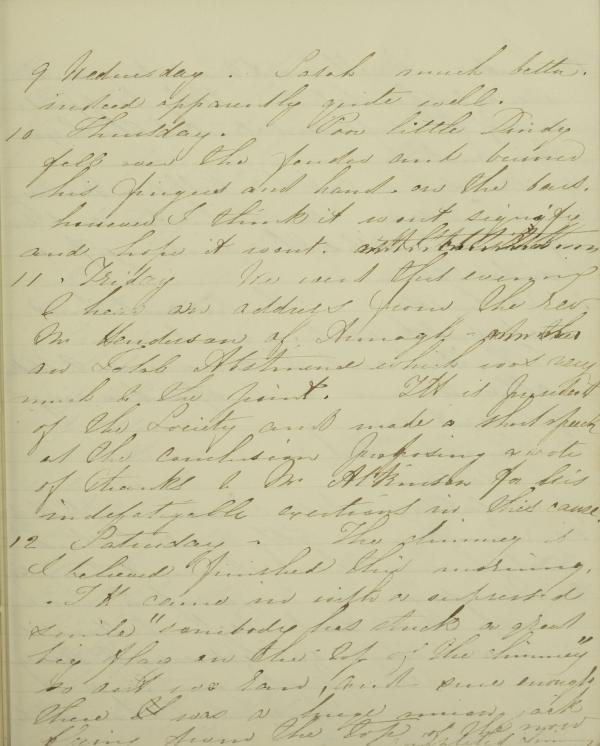 9 Wednesday . Sarah much better.
indeed apparently quite well.
10 Thursday. Poor little Dindy
fell over the fender and burned
his fingers and hand on the bars.
however I think it wont signify
and hope it wont.
11 . Friday We went that evening
to hear an address from the Rev.
Mr Henderson of Armagh -
on Total Abstinence which was very
much to the point. TH is President
of the Society and made a short speech
at the conclusion proposing a vote
of thanks to Mr Atkinson for his
indefatigable exertions in this cause.
12 Saturday - The chimney is
I believed finished this morning.
. TH came in with a supressed
smile "somebody has stuck a great
big flag on the top of the chimney"
so out we ran, and sure enough
there it was a huge union jack
flying from the top of the now